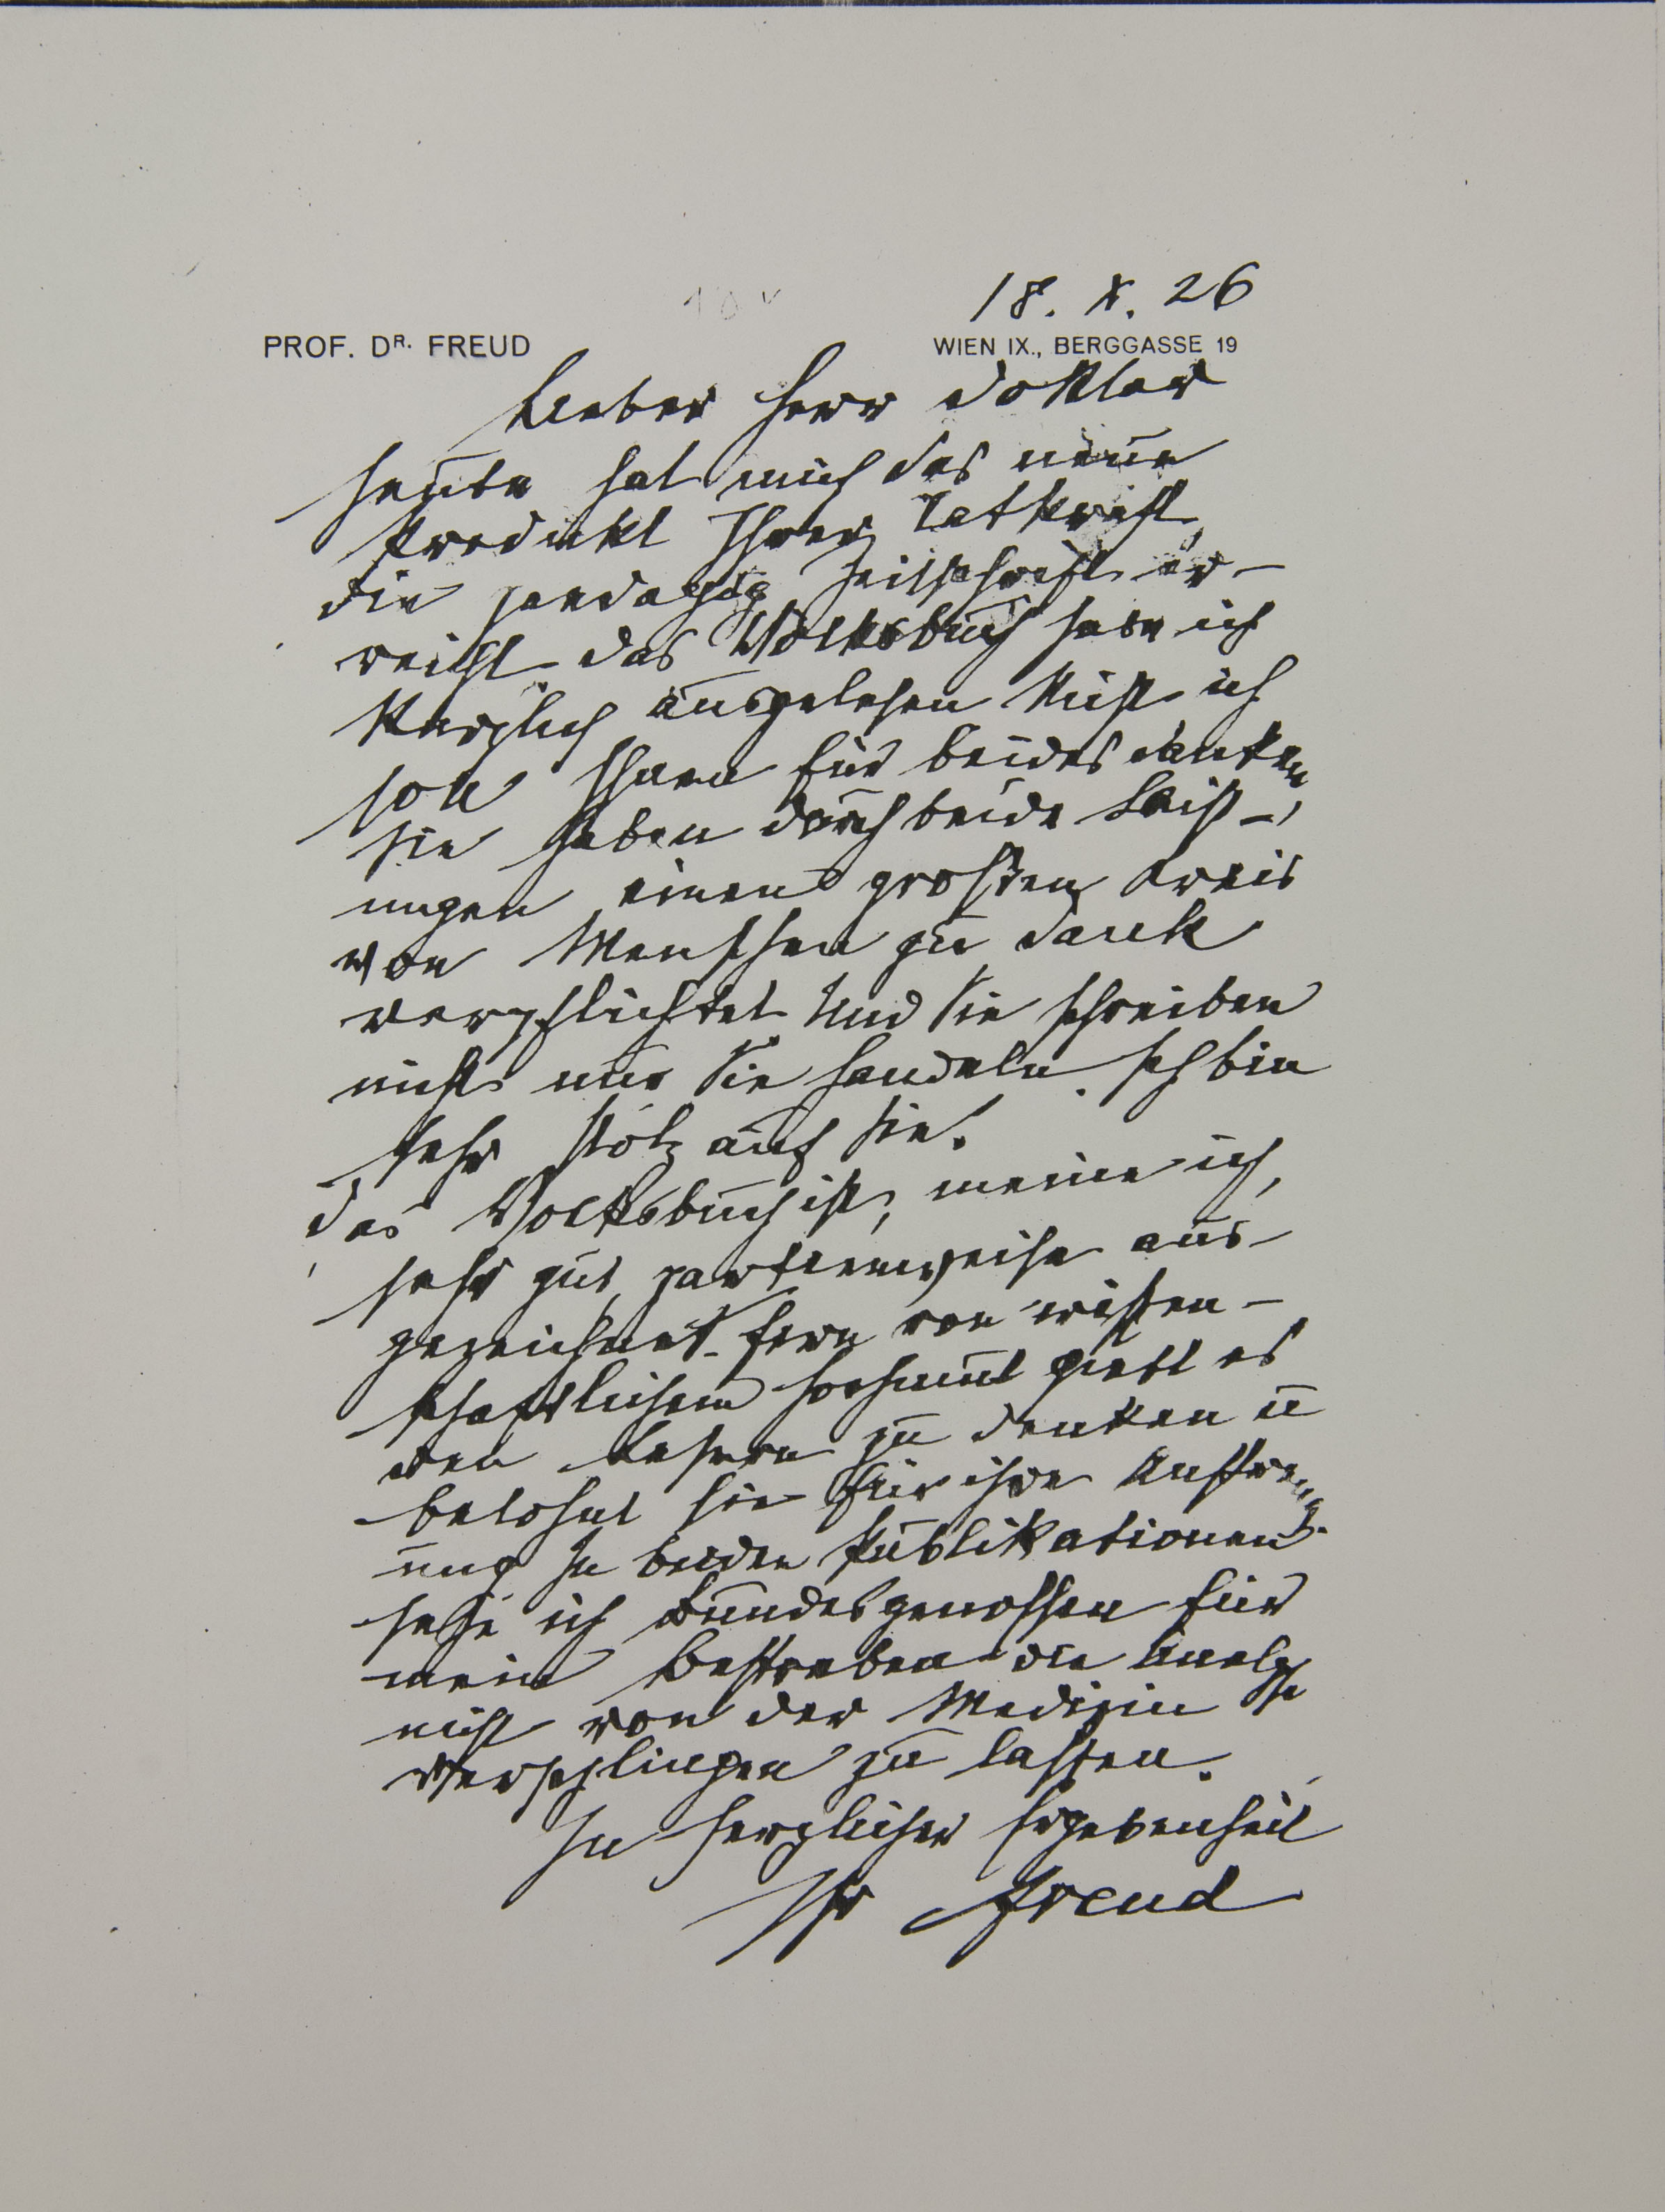 18. X. 26
PROF. DR. FREUD
WIEN IX., BERGGASSE 19
Lieber Herr Doktor
Heute hat mich das neue
Produkt Ihrer Tatkraft,
die paedagog Zeitschrift er-
reicht, das Volksbuch habe ich
kürzlich ausgelesen Nicht ich
soll Ihnen für beides danken
Sie haben durch beide Leist-
ungen einen großen Kreis
von Menschen zu Dank
verpflichtet Und Sie schreiben
nicht nur Sie handeln. Ich bin
sehr stolz auf Sie.
Das Volksbuch ist, meine ich,
sehr gut, partienweise aus-
gezeichnet. Fern von wissen-
schaftlichem Hochmut giebt es
den Lesern zu denken u
belohnt sie für ihre Anstreng
ung In beiden Publikationen
sehe ich Bundesgenossen für
mein Bestreben die Analyse
nicht von der Medizin
verschlingen zu lassen.
In herzlicher Ergebenheit
Ihr Freud